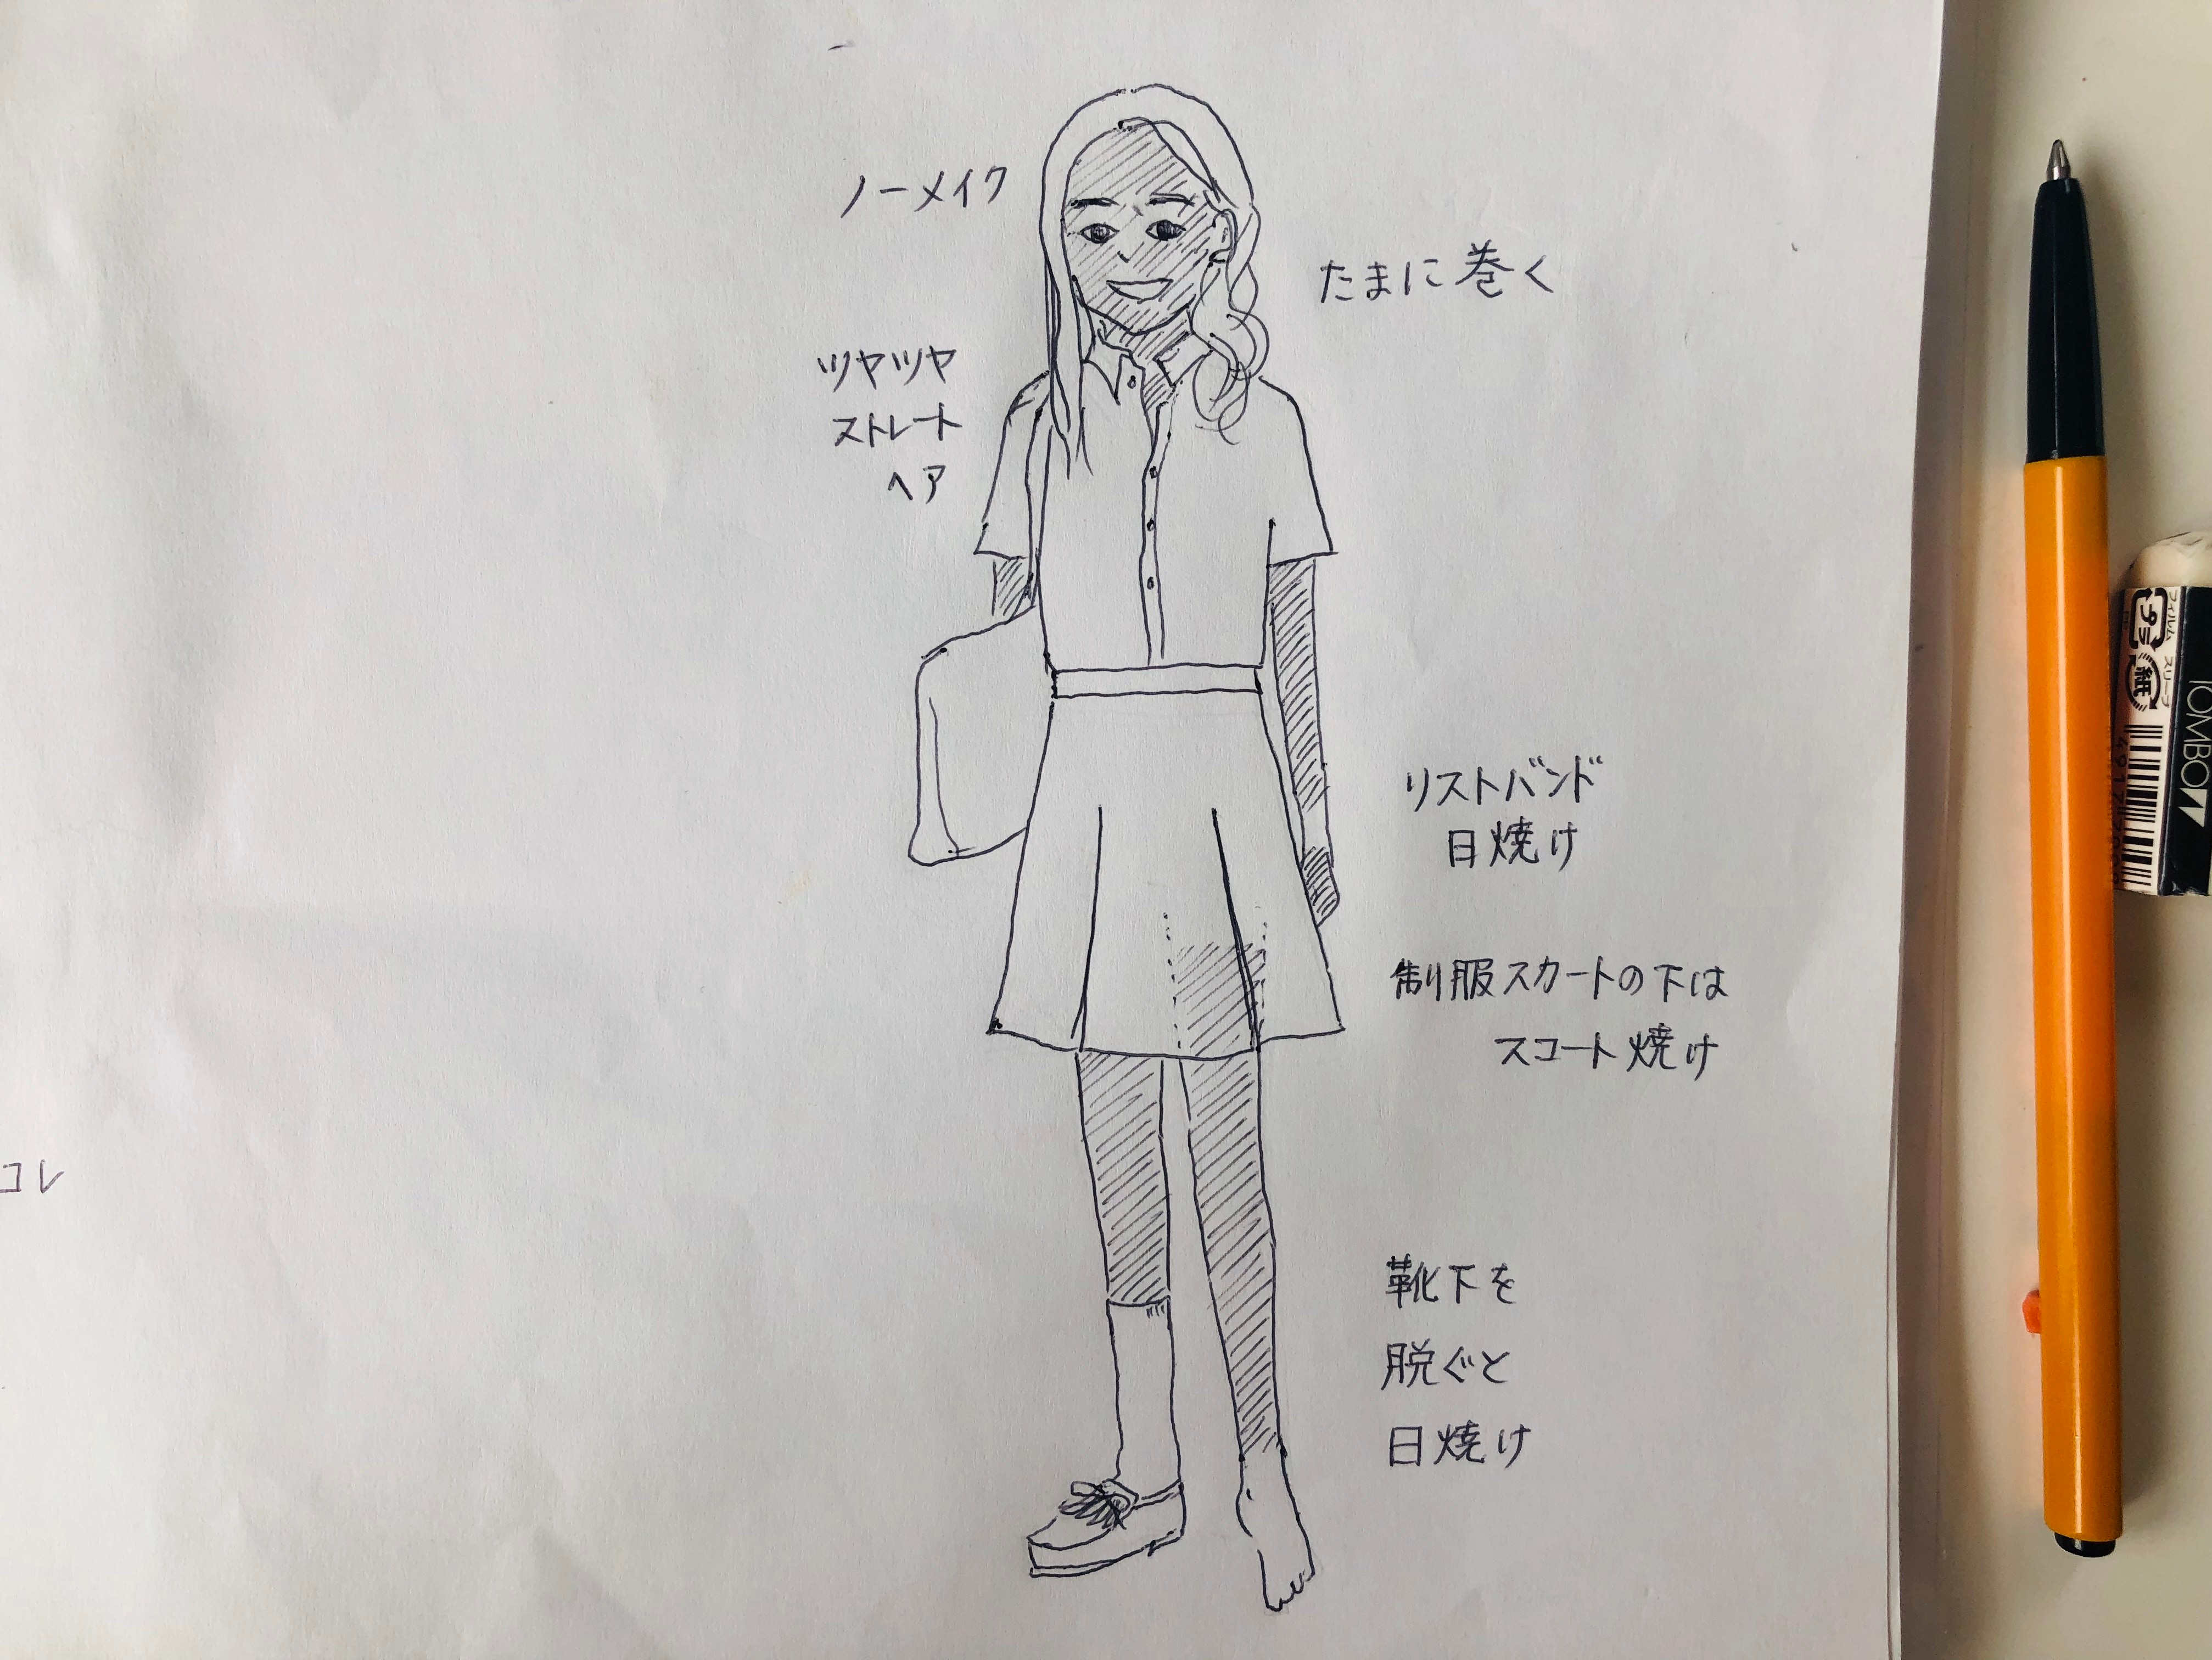 ノーメイク
たまに巻く
ツヤツヤ
ストレート
ヘア
リストバンド
日焼け
制服スカートの下は
スコート焼け
靴下を
脱ぐと
日焼け
コレ
プラ
フィルム
紙
スリーブ
TOMBOW